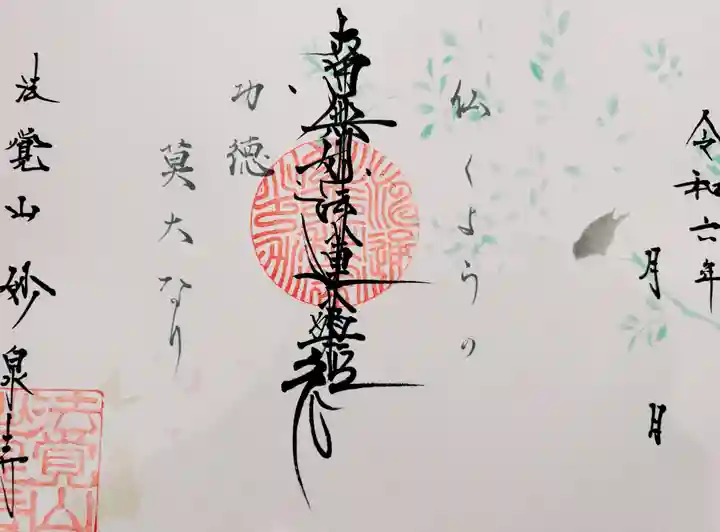 令和六年
月　日
仏くようの
南無妙法蓮華経
功徳
莫大なり
法覚山 妙泉寺